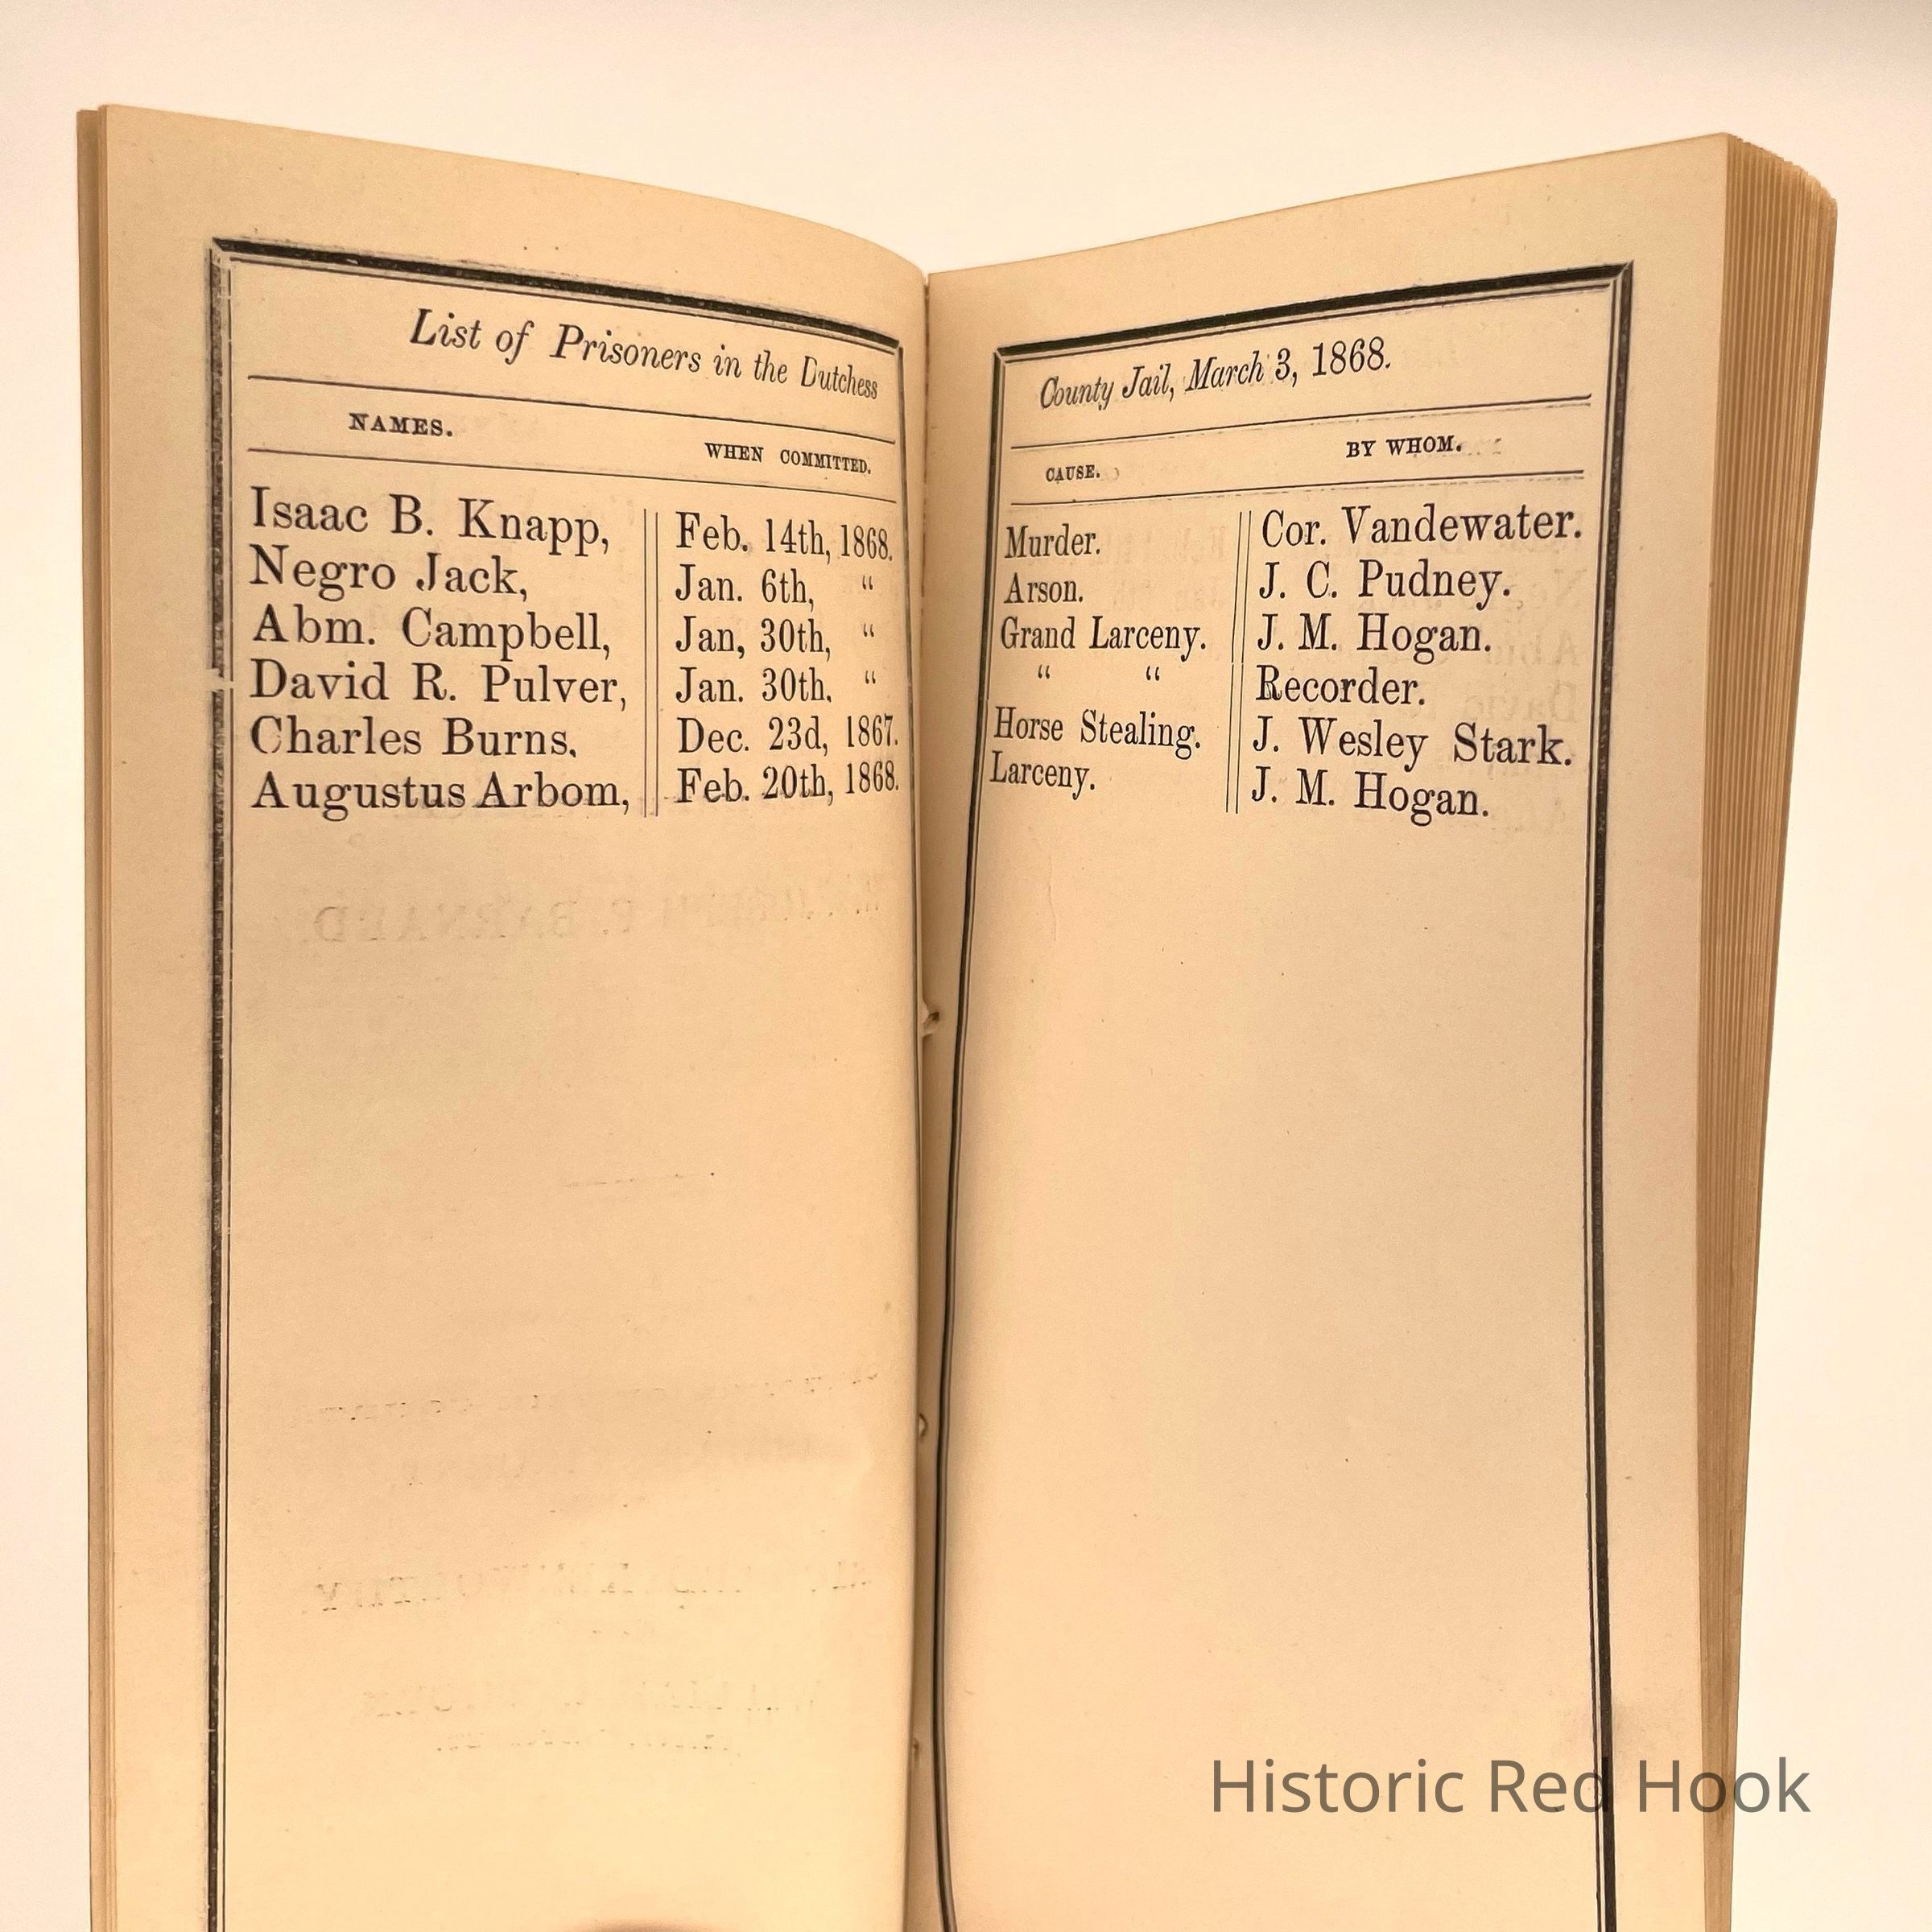 List of Prisoners in the Dutchess
NAMES. WHEN COMMITTED.
Isaac B. Knapp, Feb. 14th, 1868.
Negro Jack, Jan. 6th, “
Abm. Campbell, Jan, 30th, “
David R. Pulver, Jan. 30th. “
Charles Burns. Dec. 23d, 1867.
Augustus Arbom, Feb. 20th, 1868.
County Jail, March 3, 1868.
CAUSE. BY WHOM.
Murder. Cor. Vandewater.
Arson. J. C. Pudney.
Grand Larceny. J. M. Hogan.
“ “ Recorder.
Horse Stealing. J. Wesley Stark.
Larceny. J. M. Hogan.
Historic Red Hook